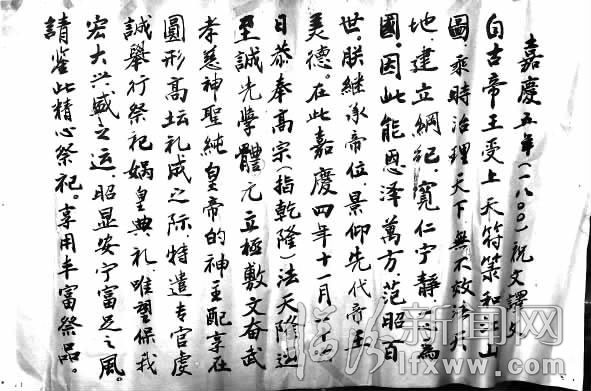 嘉慶五年(一八〇〇)祝文譯文
自古帝王受上天符箓和江山
圖,乘時治理天下,無不效法天
地建立綱紀,寬仁宁静,以為
國,因此能恩泽萬方,范昭百
世。朕継承帝位,景仰先代帝王
美德。在此嘉慶四年十一月
日恭奉高宗(指乾隆)法天隆运
至誠先孿體元立極敷文奋武
孝慈神聖純皇帝的神主配享在
圓形高坛礼成之际,特遣专官虔
誠舉行祭祀娲皇典礼,唯望保我
宏大兴盛之运昭显安宁富足之風。
請鉴此精心祭祀。享用丰富祭品。
临汾新闻网
lfxww.com